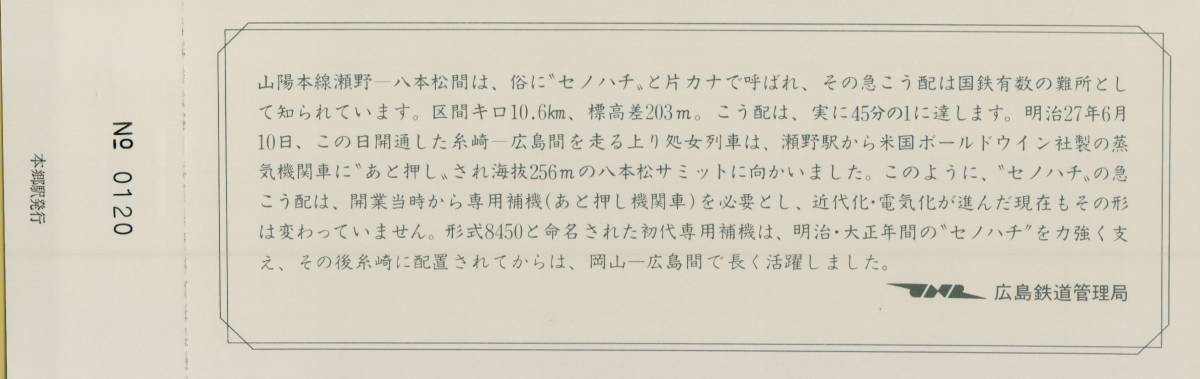 本郷駅発行
№ 0120
山陽本線瀬野―八本松間は、俗に〝セノハチ〟と片カナで呼ばれ、その急こう配は国鉄有数の難所とし
て知られています。区間キロ10.6km、標高差203m。こう配は、実に45分の1に達します。明治27年6月
10日、この日開通した糸崎―広島間を走る上り処女列車は、瀬野駅から米国ボールドウイン社製の蒸
気機関車に〝あと押し〟され海抜256mの八本松サミットに向かいました。このように、〝セノハチ〟の急
こう配は、開業当時から専用補機(あと押し機関車)を必要とし、近代化・電気化が進んだ現在もその形
は変わっていません。形式8450と命名された初代専用補機は、明治・大正年間の〝セノハチ〟を力強く支
え、その後糸崎に配置されてからは、岡山―広島間で長く活躍しました。
JNR 広島鉄道管理局